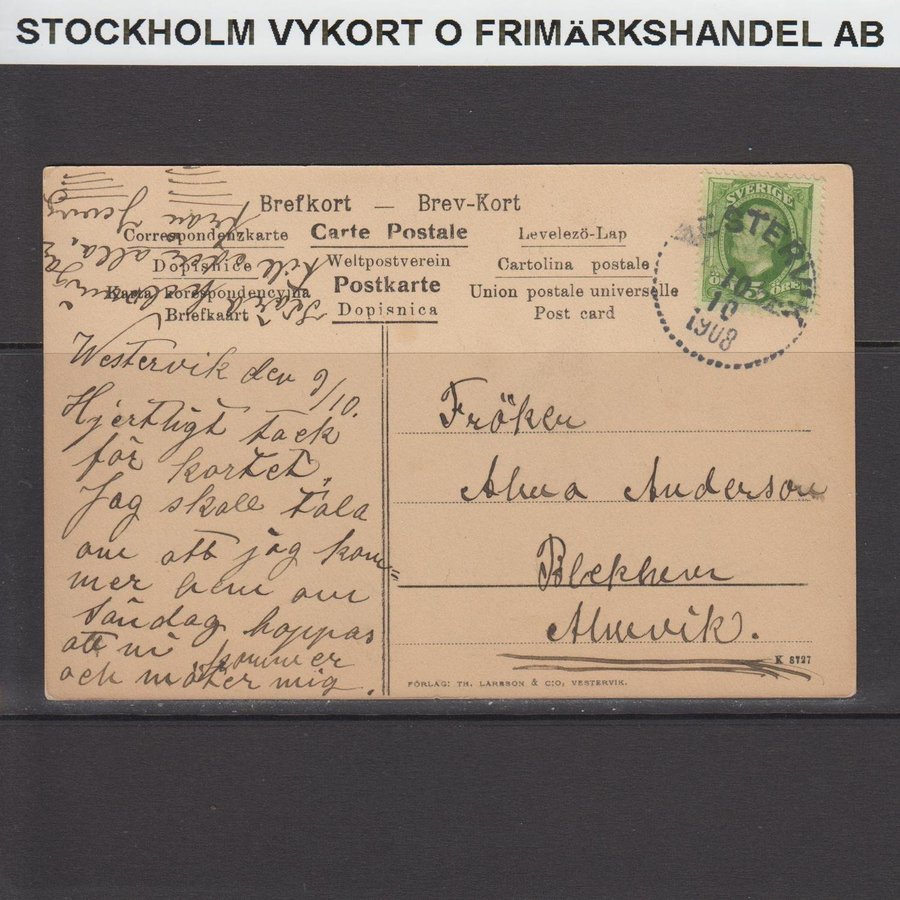 STOCKHOLM VYKORT O FRIMÄRKSHANDEL AB
Brefkort — Brev-Kort
Correspondenzkarte Carte Postale Levelezö-Lap
Dopisnice Weltpostverein Cartolina postale
Karta korespondencyjna Postkarte Union postale universelle
Briefkaart Dopisnica Post card
SVERIGE
5 ÖRE
VESTERVIK
10
1908
Westervik den 9/10.
Hjertligt tack
för kortet,
Jag skall tala
om att jag kom=
mer hem om
Söndag hoppas
att ni kommer
och möter mig.
till eder alla,
från Jenny
Fröken
Alma Anderson
Blekhem
Almvik.
K 8727
FÖRLAG: TH. LARSSON & C:O, VESTERVIK.